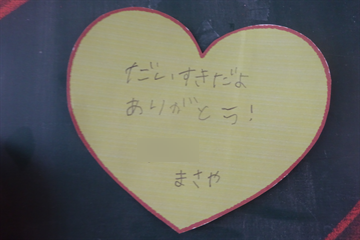 だいすきだよ
ありがとう!
まさや